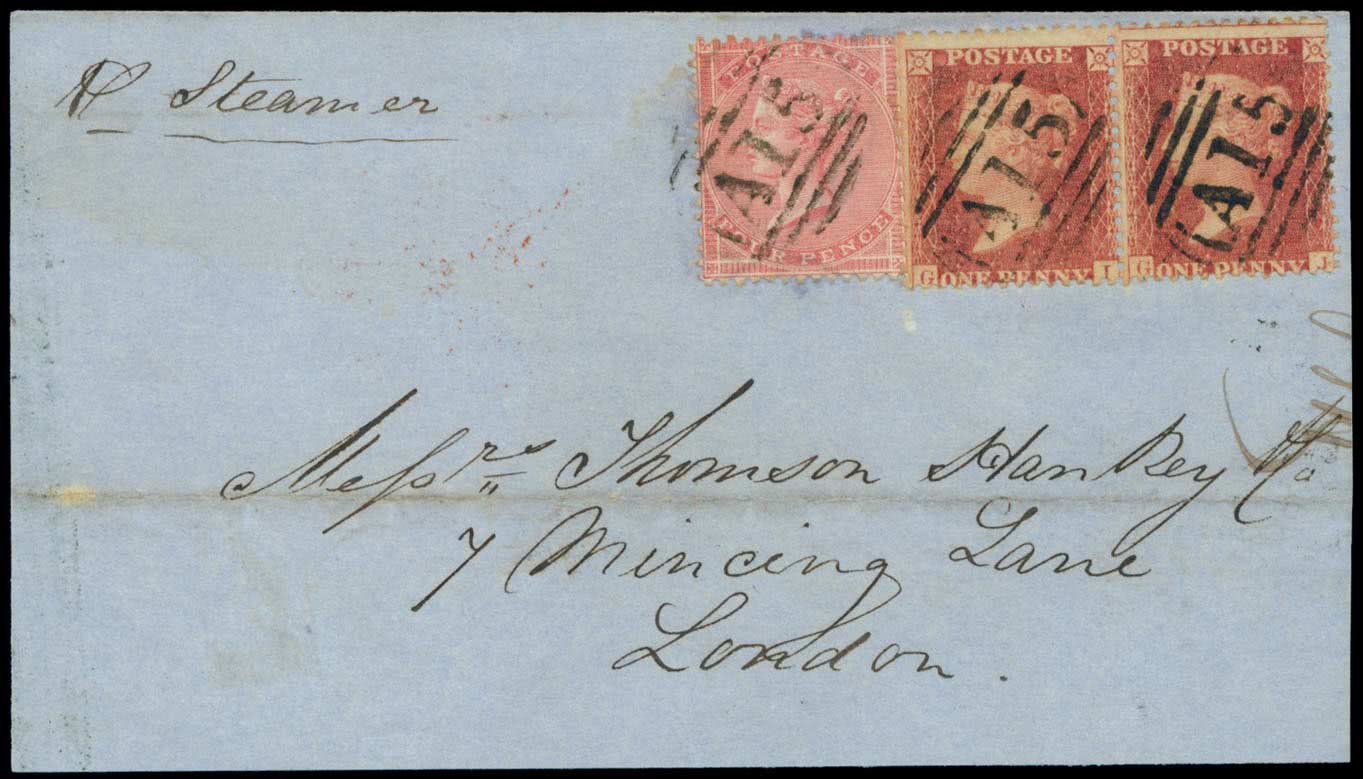 Steamer
POSTAGE
FOUR PENCE
A15
POSTAGE
G ONE PENNY I
A15
POSTAGE
G ONE PENNY J
A15
Messrs Thomson Hankey &Co
7 Mincing Lane
London.